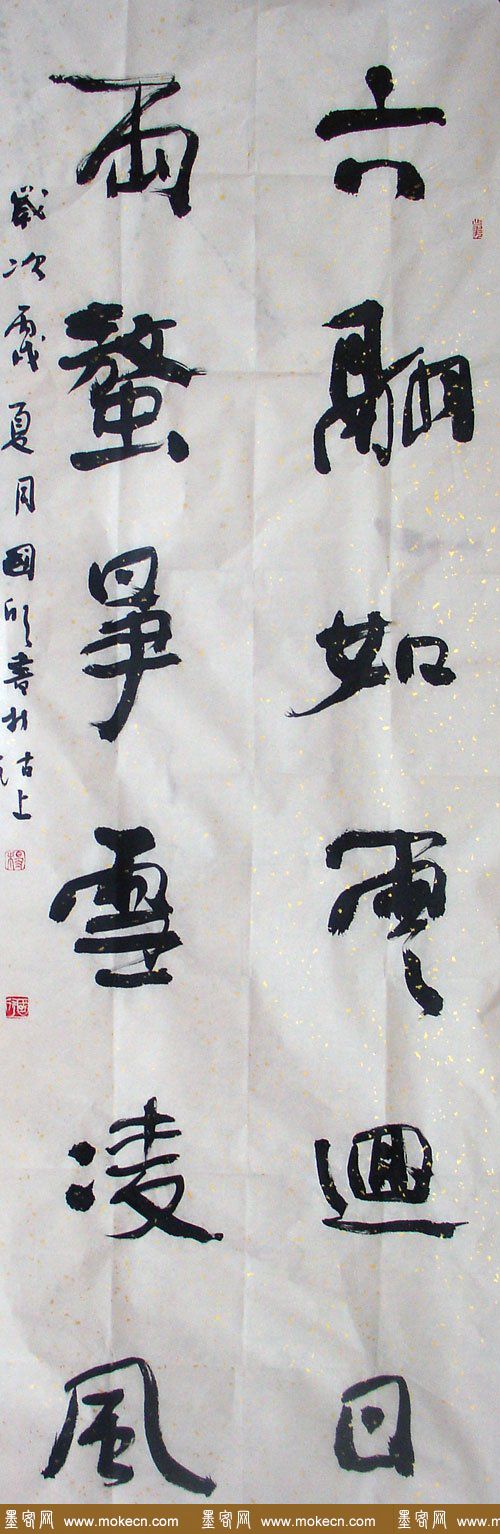 六翮如雲迴日
兩螯爭雪凌風
歲次丙戌夏月國欣書於沽上
墨客网 www.mokecn.com 墨客网 www.mokecn.com 墨客网